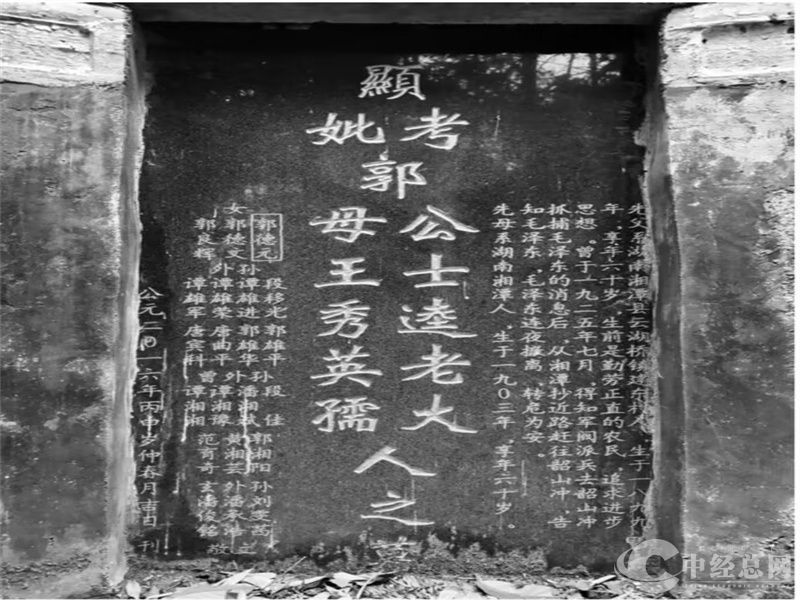 先父系湖南湘潭县云湖桥镇建东村人，生于一八九九
年，享年六十岁，生前是勤劳正直的农民，追求进步
思想。曾于一九二五年七月，得知军阀派兵去韶山冲
抓捕毛泽东的消息后，从湘潭抄近路赶往韶山冲，告
知毛泽东，毛泽东连夜撤离，转危为安。
先母系湖南湘潭人，生于一九〇三年，享年六十岁。
顯
考
妣
郭
公士逵老大
母王秀英孺
人之
郭德元
女郭德文
郭良辉
孙 段移光 郭雄平 孙 段佳 郭湘阳 孙 刘雯茜
谭雄进 郭雄华 外 潘湘斌
外 谭雄荣 唐曲平 谭湘豫 黄湘芸 外 潘
谭雄军 唐宾科 曾 谭湘湘 范育奇 玄 潘俊铭
公元二〇一六年丙申岁仲春月吉日 刊
中经总网